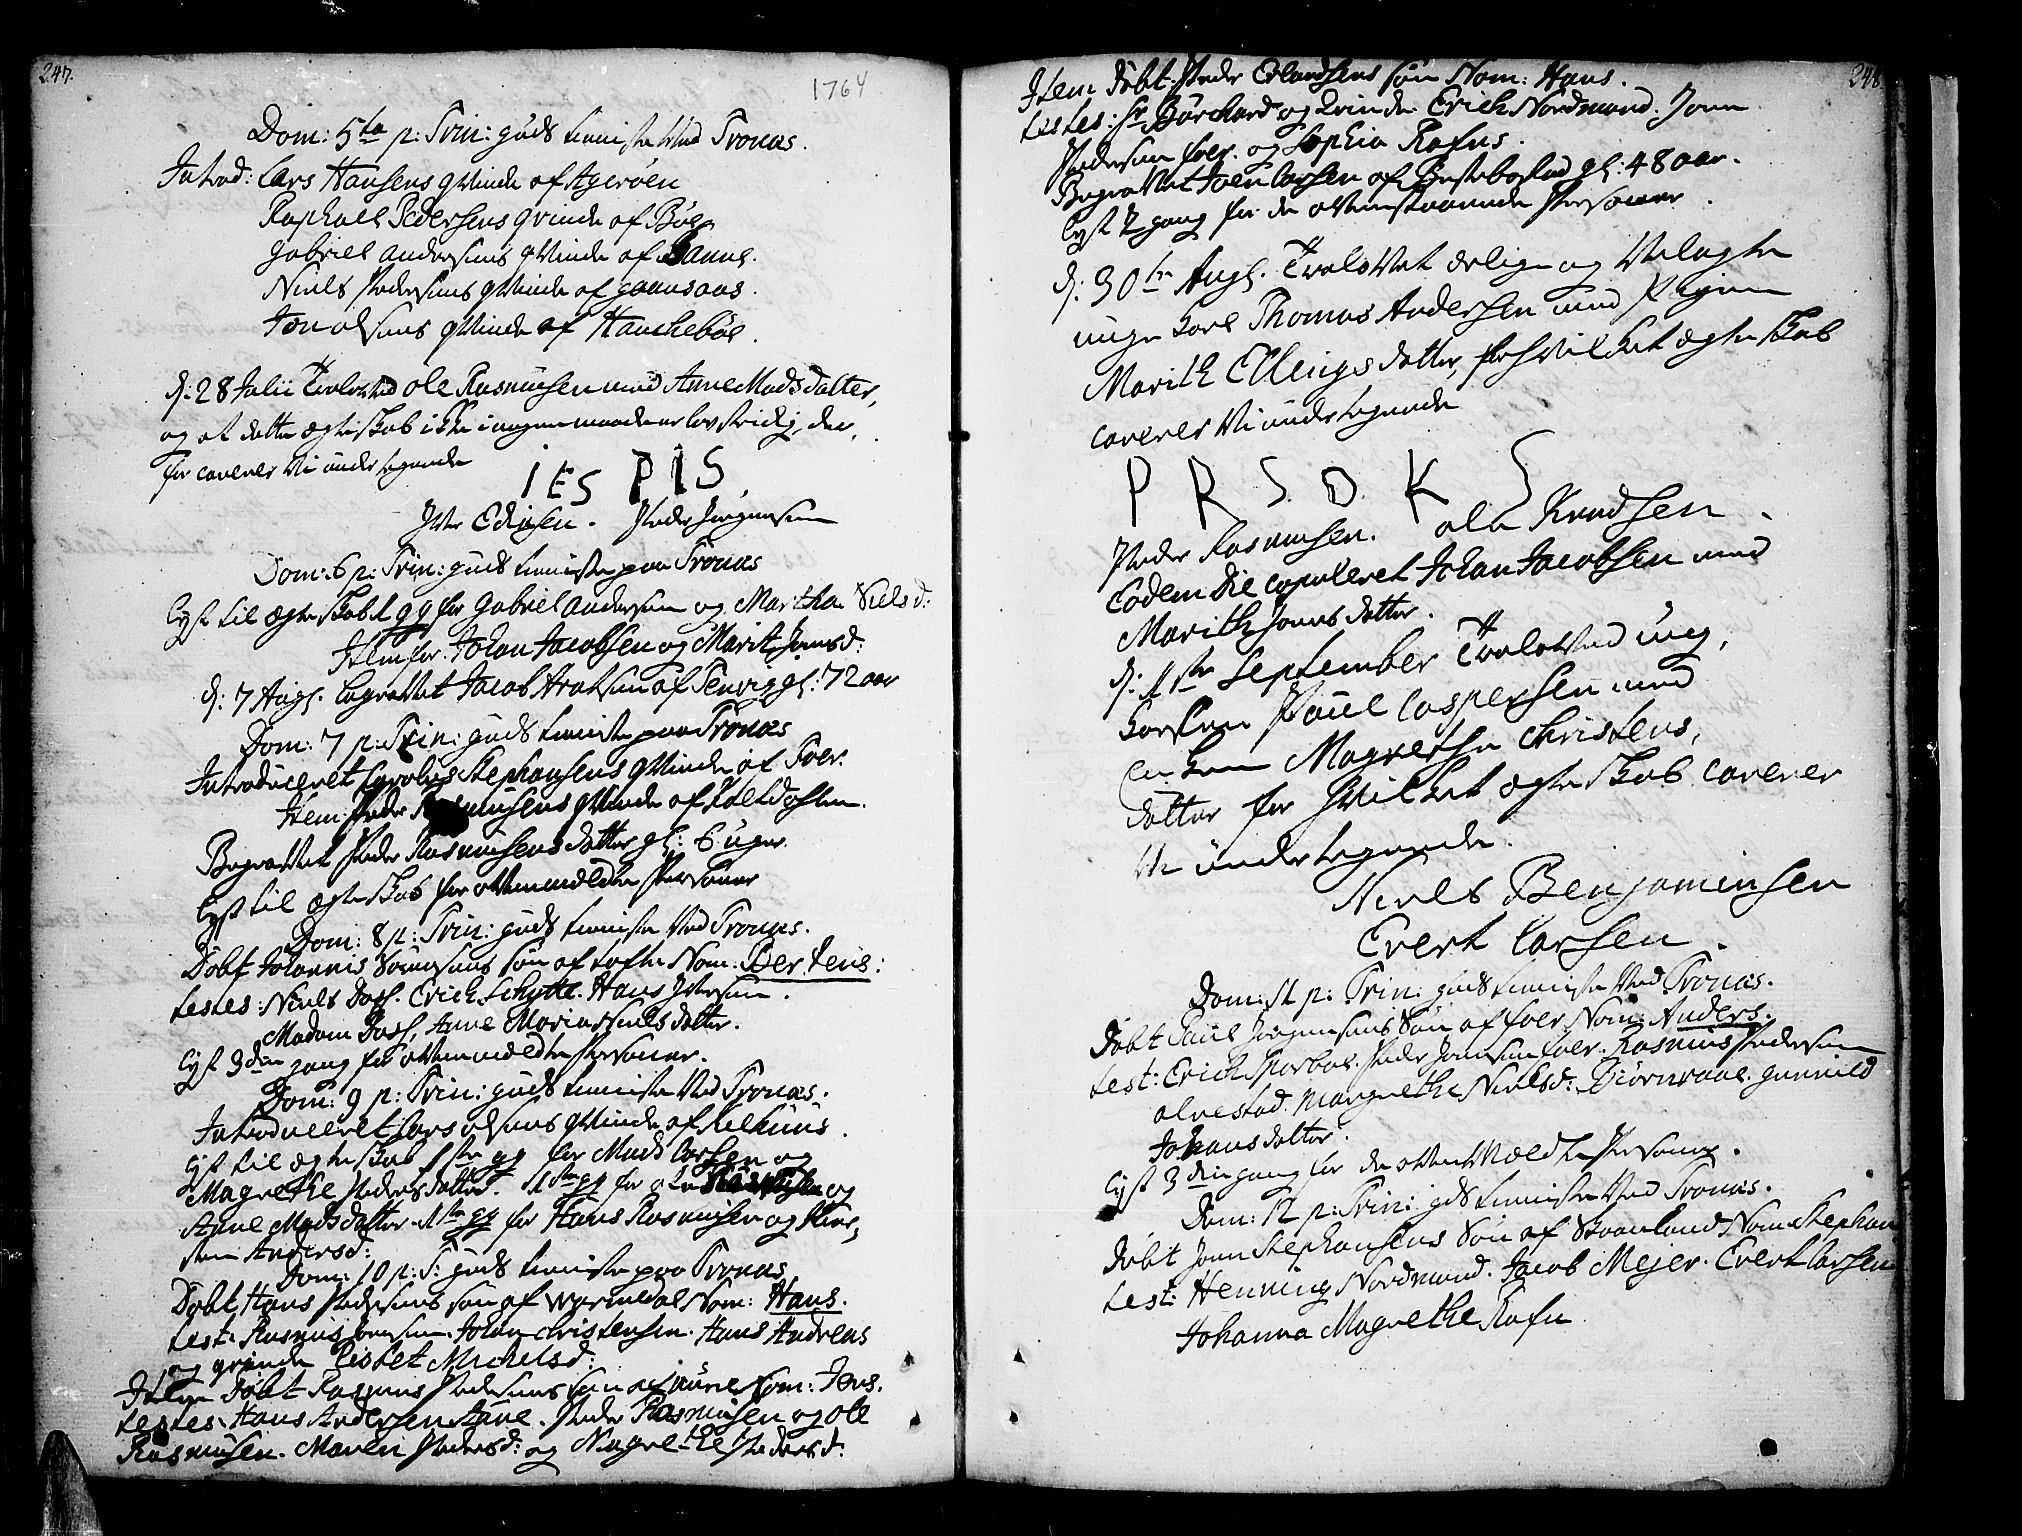 247.
1764
Dom: 5ta p: Trin: guds tienniste Ved Tronæs.
Introd: Lars Hansens qvinde af Agerøen
Raphael Pedersens qvinde af Bøe
Gabriel Andersens qvinde af
Niels Pedersens qvinde af gaunsaas.
Jon olsens qvinde af Hanchebøe.
d: 28 Julii Troloved ole Rasmusen med Anne Mads datter,
og at dette ægteskab ikke i nogen maade er lovstridig, der,
for caverer Vi underlegnede
I E S P I S
Iver Edisen. Peder Jørgensen
Dom: 6 p: Trin: guds tienniste paa Tronæs
Lyst til ægteskab 1 gg for Gabriel Andersen og Martha Nielsd:
Item for Johan Jacobsen og Marit Jonsd:
d: 7 Aug. begravet Jacob af gl: 72 aar
Dom: 7 p: Trin: guds tienniste paa Tronæs
Introduceret Carolus Stephansens qvinde af Foer.
Item Peder Rasmusens qvinde af
Begravet Peder Rasmusens datter gl: 6 uger.
Lyst til ægteskab for ovenmeldte Personer
Dom: 8 p: Trin: guds tienniste Ved Tronæs.
Døbt Johannis søn af tofte Nom: Bertens:
testes: Niels Dass. Erich Schytte. Hans Iversen.
Madam Dass, Anne Maria Nielsdatter.
Lyst 3die gang for ovenmeldte Personer.
Dom: 9 p: Trin: guds tienniste Ved Tronæs.
Introduceret Lars olsens qvinde af Kilhuus.
Lyst til ægteskab 1ste gg for Mads Larsen og
Magrethe Pedersdatter. 1ste gg for ole og
Anne Madsdatter. 1ste gg for Hans Rasmusen og Kier,
sten Andersd:
Dom: 10 p: T: guds tienniste paa Tronæs
Døbt Hans Pedersens søn af Nom: Hans.
test: Rasmus Jonsen. Johan Christensen. Hans Andreas
og qvinde Lisbet Michelsd:
Item Døbt Rasmus Pedersens søn af Nom: Jens.
testes Hans Andersen. Peder Rasmusen og ole
Rasmusen. Maren Pedersd: og Magrethe Pedersd:
248.
Item Døbt Peder Erlandsens søn Nom: Hans.
testes: Sr Borchard og qvinde. Erich Nordmand. Jonn
Pedersen foer. og Sophia Rafns.
Begravet Joen Larsen af gl: 48 aar.
Lyst 2 gang for de ovenstaaende Personer.
d: 30te Aug. Trolovet ærlige og Velagte
unge Karl Thomas Andersen med Pigen
Marith Ellingsdatter, for hvilket ægteskab
caverer Vi underlegnede
P R S. O. K S
Peder Rasmusen. ole Knudsen.
Eodem Die copuleret Johan Jacobsen med
Marith Jonsdatter.
d: 1ste September Trolovet ung,
karlen Povel Caspersen med
Magrethe Christens,
datter for hvilket ægteskab caverer
Vi underlegnede.
Niels Benjaminsen
Evert Larsen.
Dom: 11 p: Trin: guds tienniste Ved Tronæs.
Døbt Paul Jørgensens søn af foer Nom: Anders.
test: Erich Sparboe. Peder Jonsen foer. Rasmus Pedersen
olvestad. Margrethe Nielsd: Biørnraae. gunnild
Johansdatter.
Lyst 3die gang for de ovenmeldte Personer.
Dom: 12 p: Trin: gds tienniste Ved Tronæs.
Døbt Jonn Stephansens søn af Skaanland Nom: Stephan
test: Henning Nordmand. Jacob Mejer. Evert Larsen
Johanna Magrethe Rafn